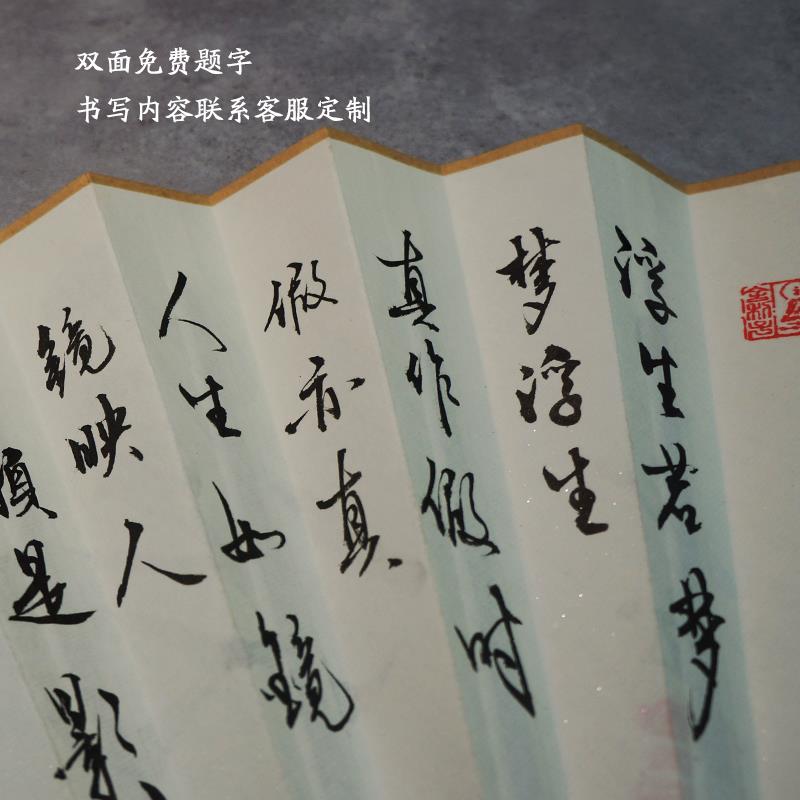 双面免费题字
书写内容联系客服定制
浮生若梦
梦浮生
真作假时
假亦真
人生如镜
镜映人
须是影